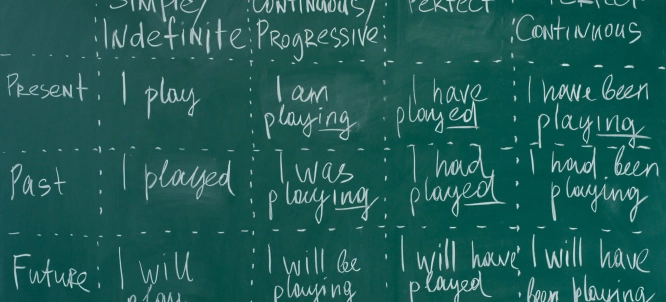 Simple/ Continuous/ Perfect Perfect
Indefinite Progressive Continuous
Present I play I am I have I have been
playing played playing
Past I played I was I had I had been
playing played playing
Future I will I will be I will have I will have
play playing played been playing